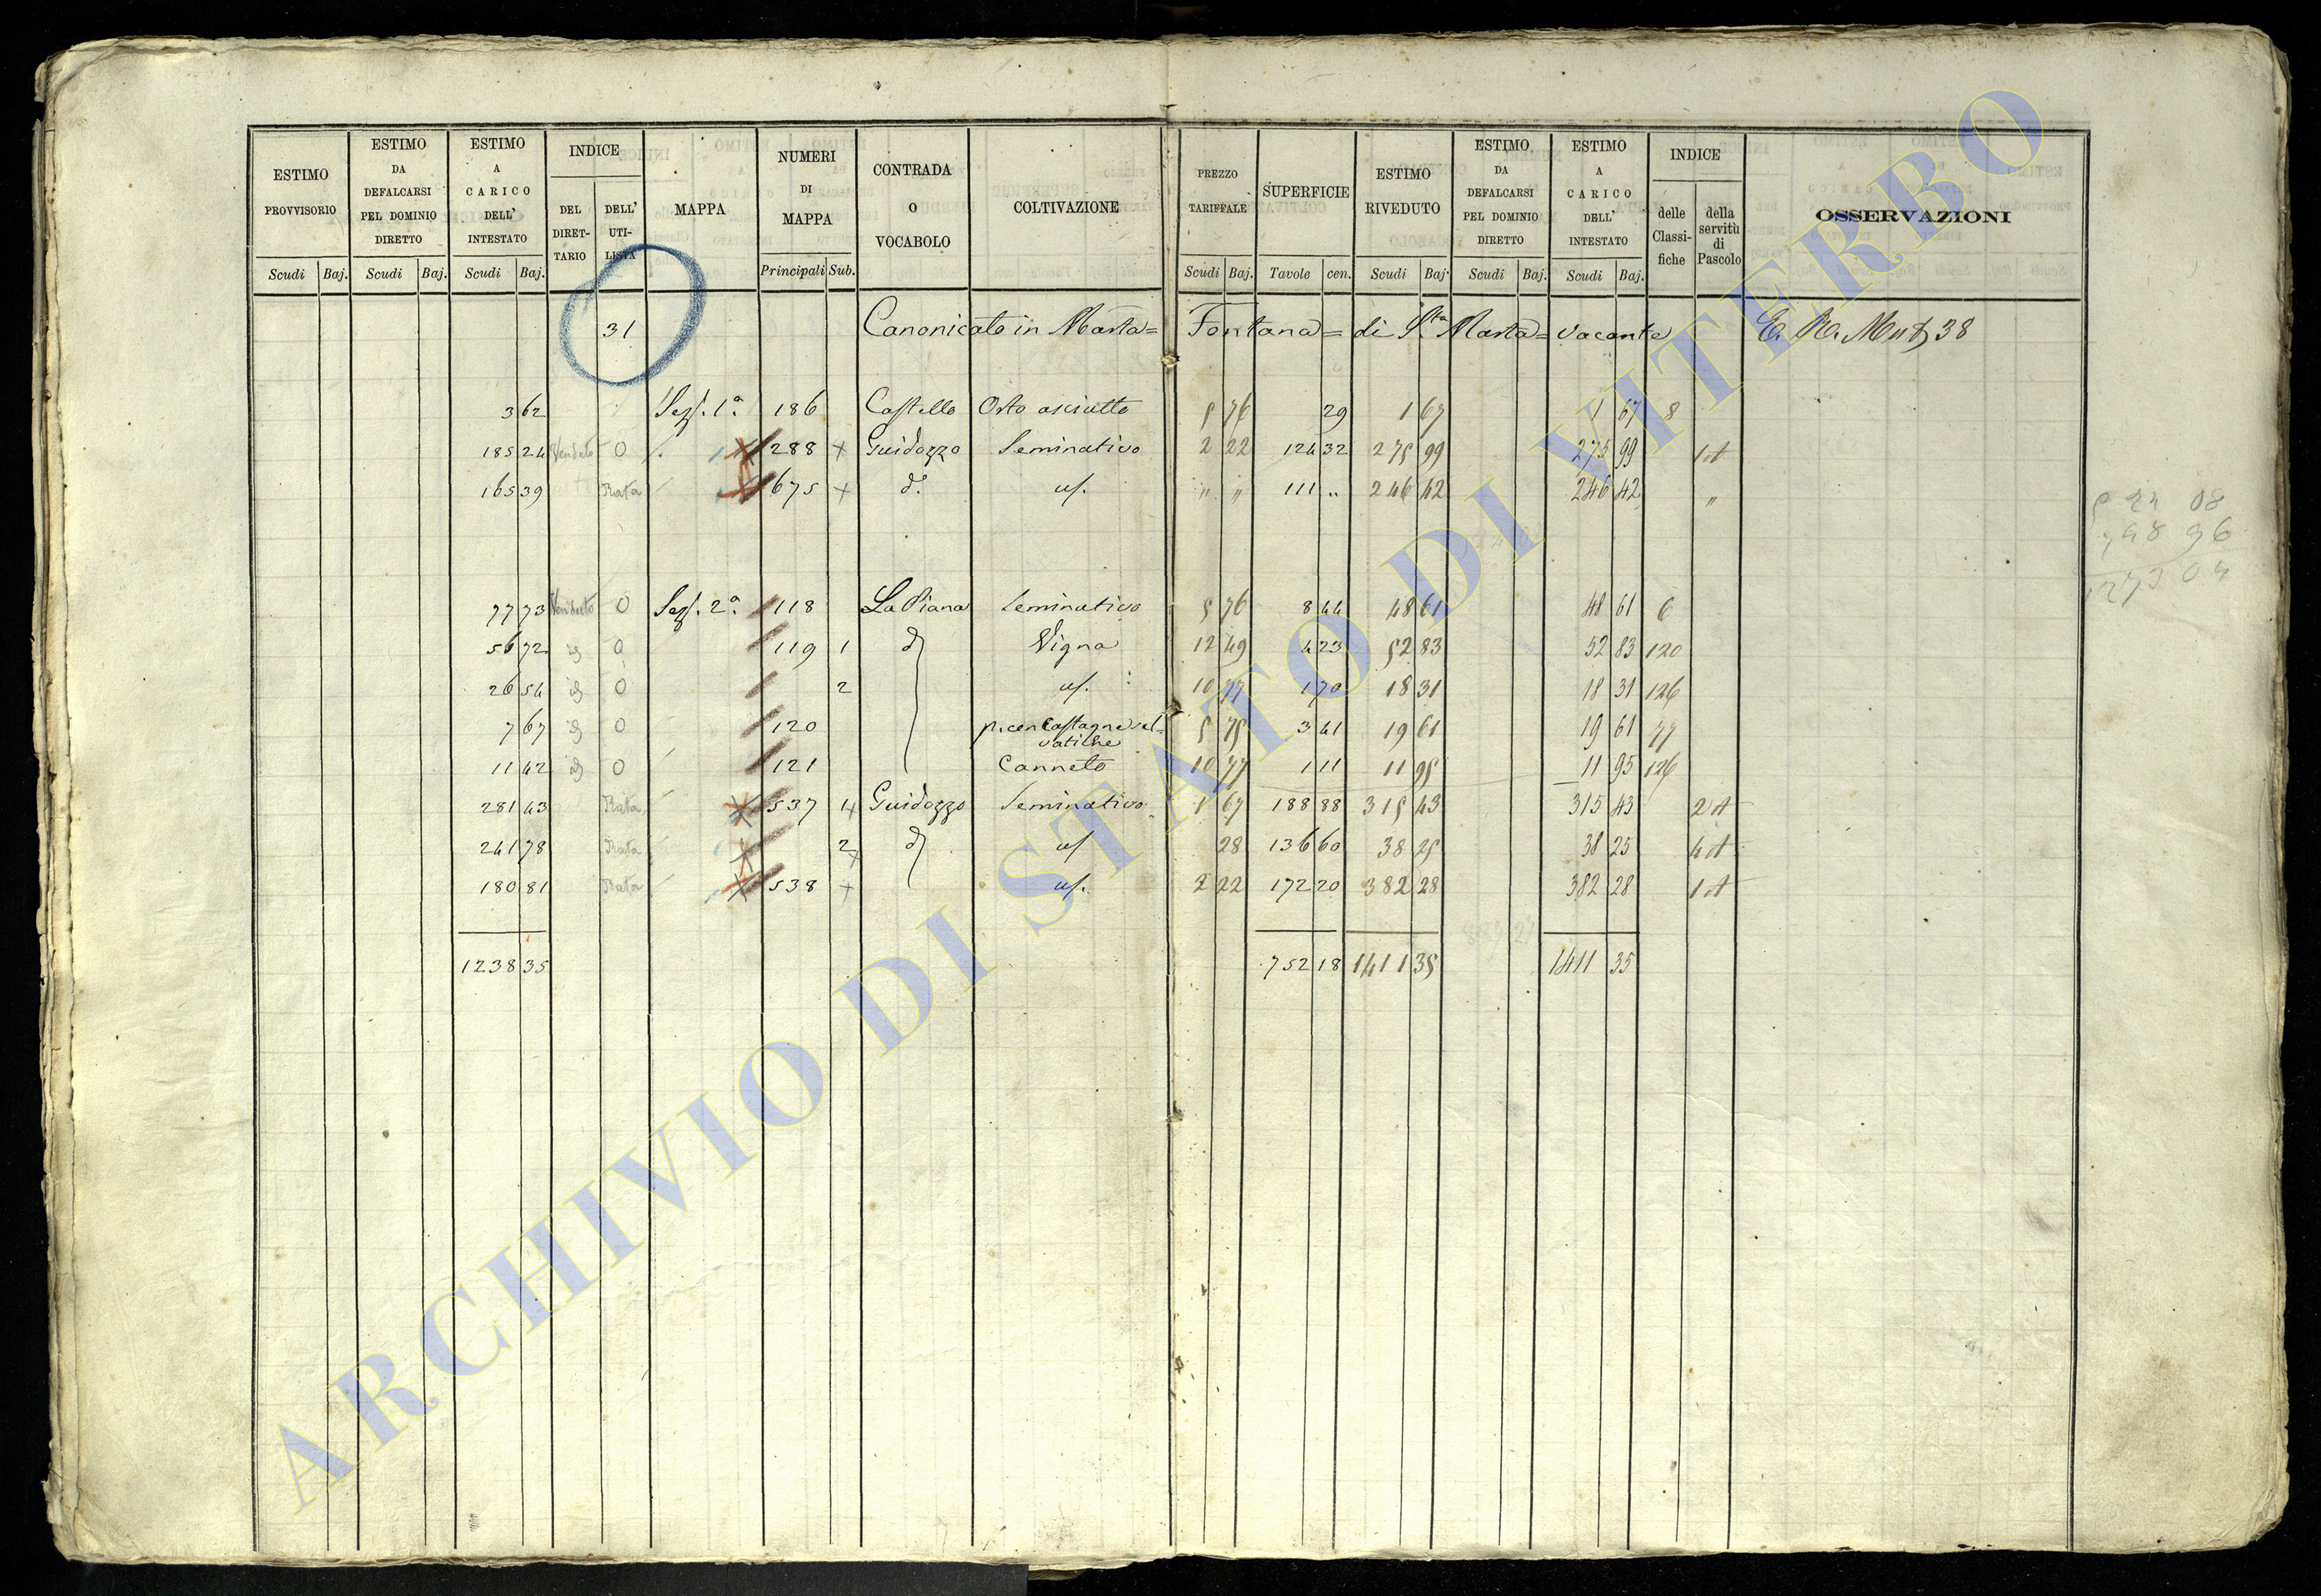 ESTIMO PROVVISORIO
ESTIMO DA DEFALCARSI PEL DOMINIO DIRETTO
ESTIMO A CARICO DELL' INTESTATO
INDICE
DEL DIRETTARIO
DELL' UTILISTA
MAPPA
NUMERI DI MAPPA
CONTRADA O VOCABOLO
COLTIVAZIONE
PREZZO TARIFFALE
SUPERFICIE
ESTIMO RIVEDUTO
ESTIMO DA DEFALCARSI PEL DOMINIO DIRETTO
ESTIMO A CARICO DELL' INTESTATO
INDICE
delle Classifiche
della servitù di Pascolo
OSSERVAZIONI
Scudi Baj. Scudi Baj. Scudi Baj. Principali Sub. Scudi Baj. Tavole cen. Scudi Baj. Scudi Baj. Scudi Baj.
31 Canonicato in Marta= Fontana= di S.ta Marta= vacante 38
3 62 Sez. 1a. 186 Castello Orto asciutto 5 76 29 1 67 1 67 8
185 24 Venduto 0 288 + Guidozzo Seminativo 2 22 124 32 275 99 275 99 1 A
165 39 Rata 675 + d. us. " " 111 .. 246 42 246 42 "
77 73 Venduto 0 Sez. 2a. 118 La Piana Seminativo 5 76 8 44 48 61 48 61 6
56 72 id 0 119 1 d Vigna 12 49 4 23 52 83 52 83 120
26 54 id 0 2 us. 10 77 1 70 18 31 18 31 126
7 67 id 0 120 5 75 3 41 19 61 19 61 77
11 42 id 0 121 Canneto 10 77 1 11 11 95 11 95 126
281 43 Rata 537 Guidozzo Seminativo 1 67 188 88 315 43 315 43 2 A
241 78 Rata 2 d us 28 136 60 38 25 38 25 4 A
180 81 Rata 538 + us. 2 22 172 20 382 28 382 28 1 A
1238 35 752 18 1411 35 1411 35
ARCHIVIO DI STATO DI VITERBO